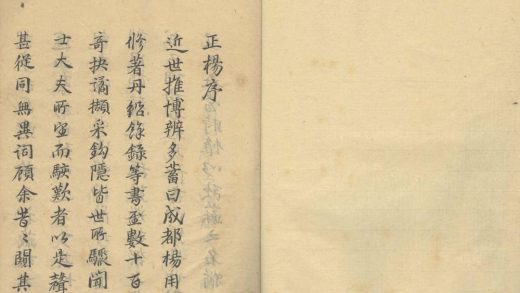 正楊序
近世推博辨多蓄曰成都楊用
修著丹鉛餘錄等書盈數十百
奇抉譎擷采鈎隱皆世所驟聞
士大夫所宣而駭歎者以是聲
甚從同無異词顧余昔〻闚其